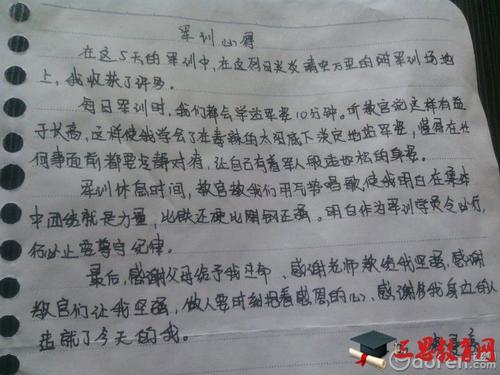 军训心得
在这5天的军训中,在这烈日炎炎晴空万里的时军训场地
上,我收获了许多。
每日军训时,我们都会学站军姿10分钟。听教官说这样有益
于长高,这样使我学会了在毒辣的太阳底下淡定地站军姿,懂得在任
何事面前都要老辣对待,让自己有着军人
军训休息时间,教官教我们用气势唱歌使我明白在集体
中团结就是力量,比铁还硬比刚钢还强。明白作为军训学员令必行,
行必止要尊守纪律。
最后,感谢父母给予我生命、感谢老师教给我坚强,感谢
教官们让我坚强,做人要时刻抱着感恩的心,感谢我身边的人
造就了今天的我。
三思教育网
Gaoren.com